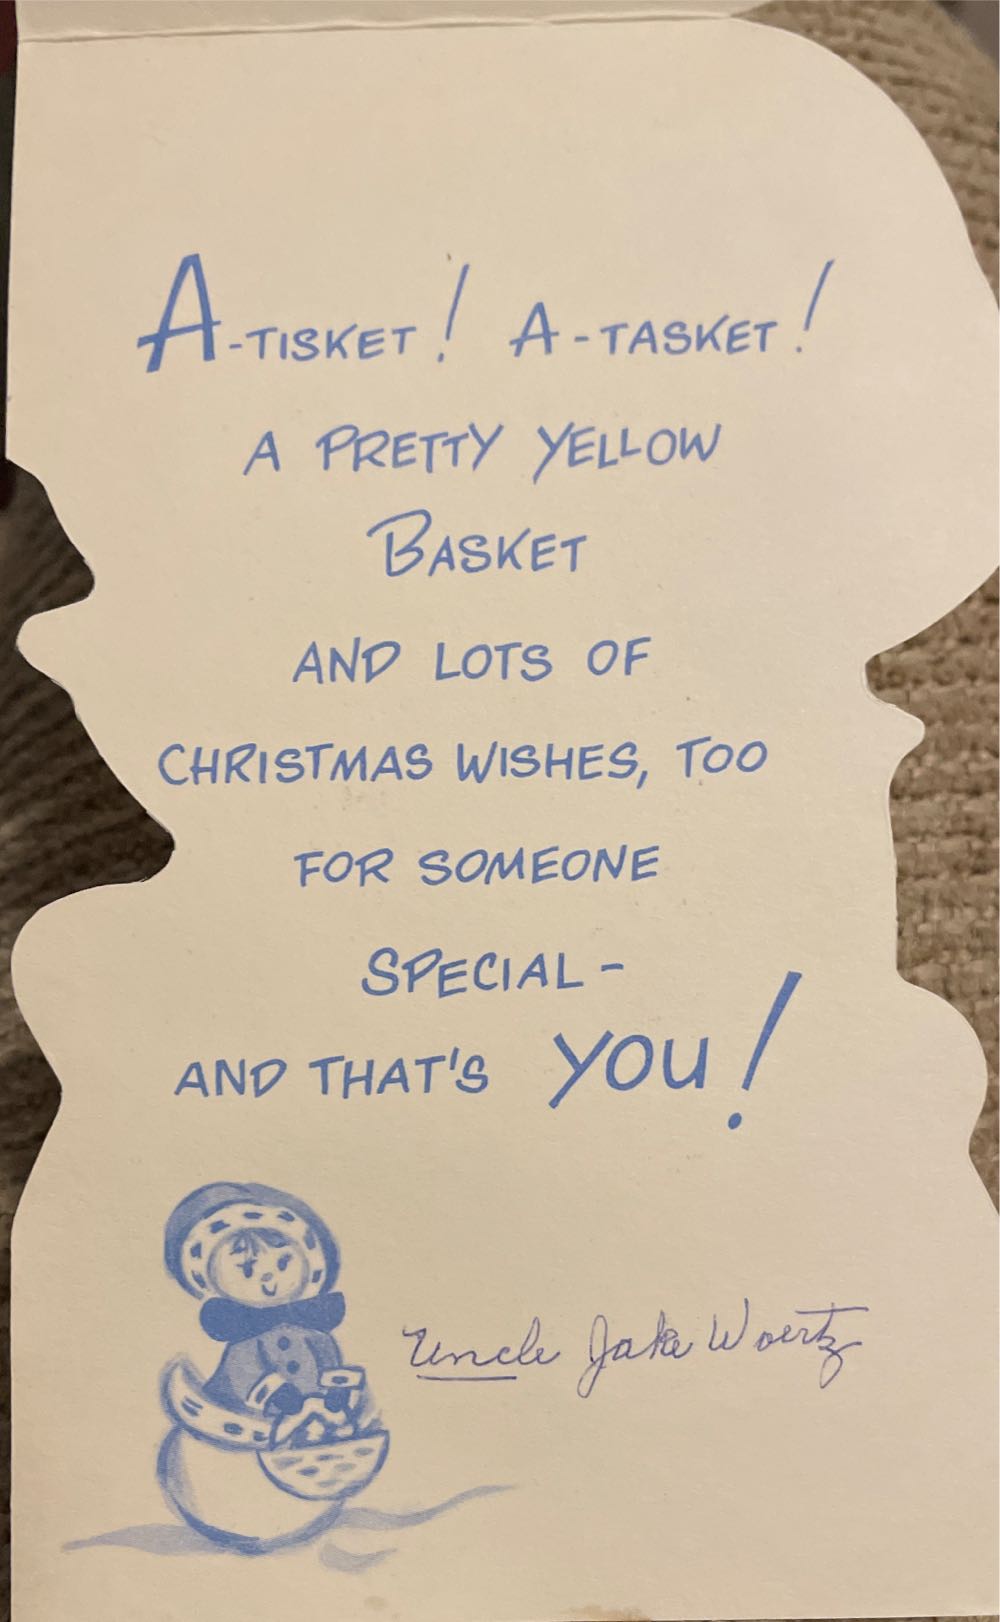 A-TISKET! A-TASKET!
A PRETTY YELLOW
BASKET
AND LOTS OF
CHRISTMAS WISHES, TOO
FOR SOMEONE
SPECIAL -
AND THAT'S YOU!
Uncle Jake Woertz